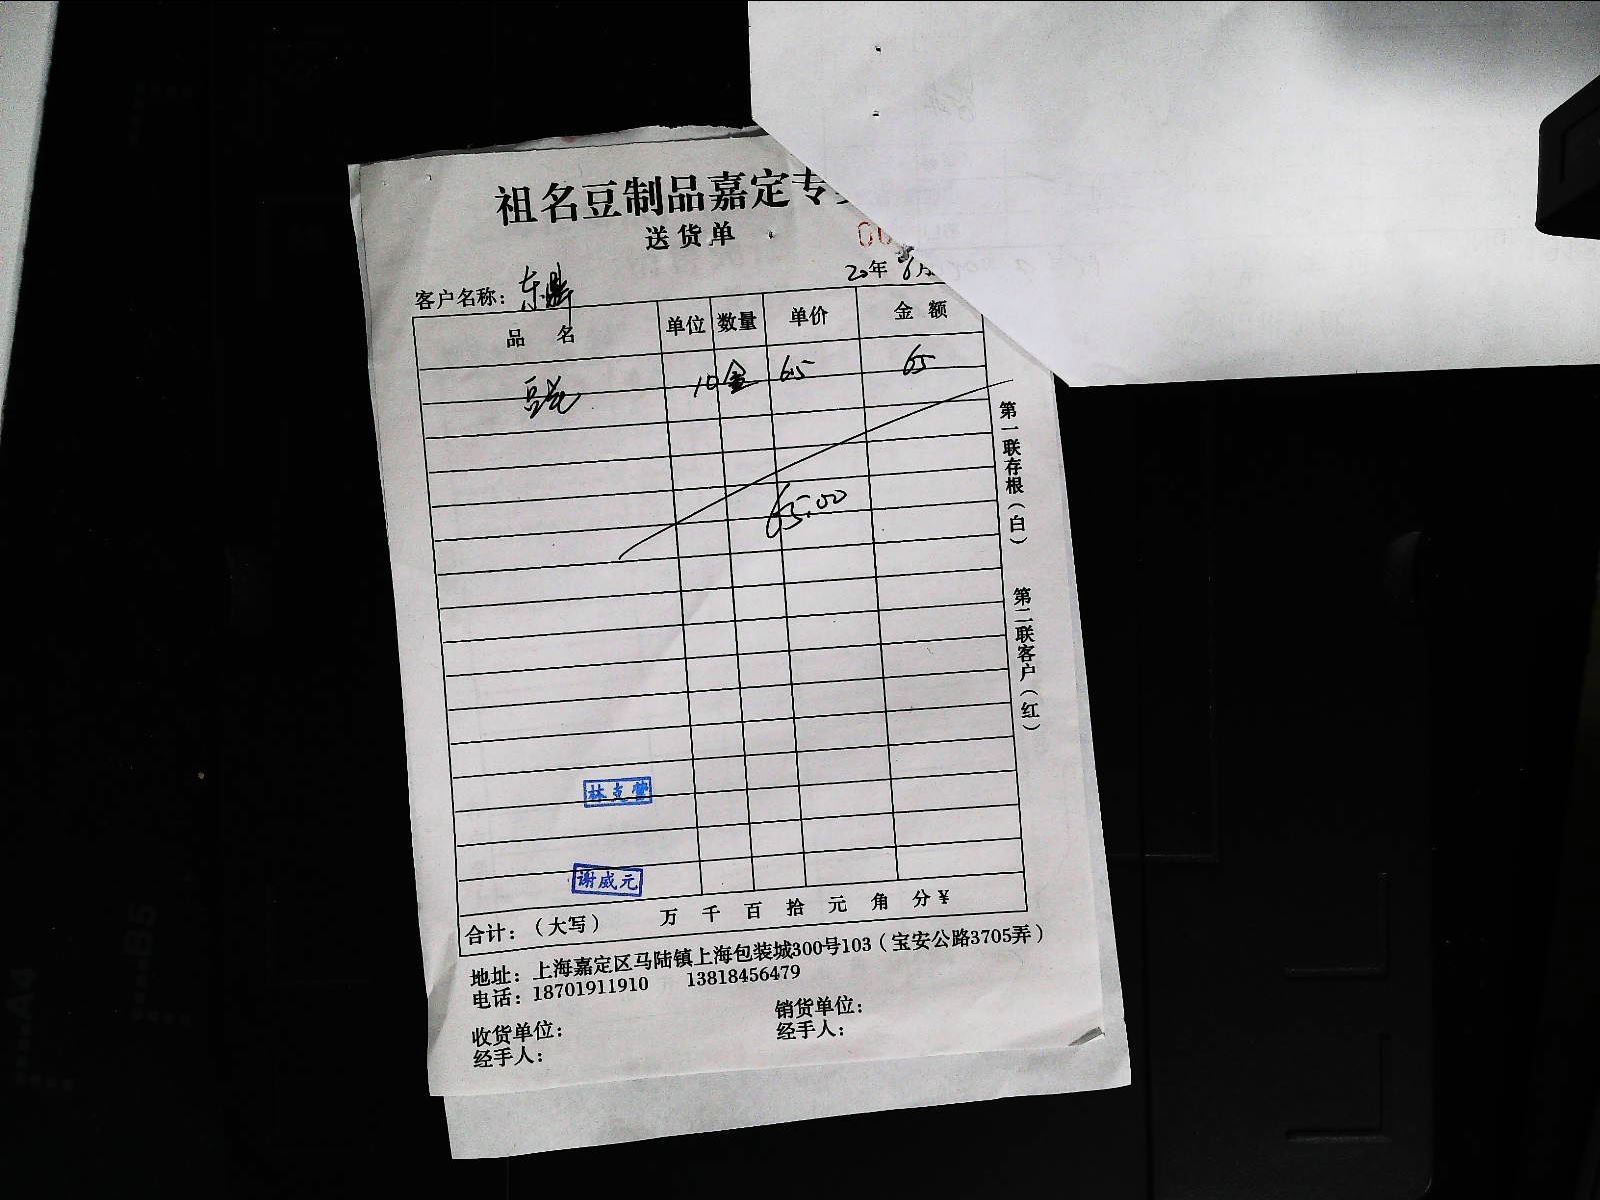 祖名豆制品嘉定专
送货单
00
20年 6月
客户名称：东鼎
品 名 单位 数量 单价 金 额
10盒 65 65
65.00
第一联存根（白）
第二联客户（红）
林克营
谢威元
合计：（大写） 万 千 百 拾 元 角 分￥
地址：上海嘉定区马陆镇上海包装城300号103（宝安公路3705弄）
电话：18701911910 13818456479
收货单位： 销货单位：
经手人： 经手人：